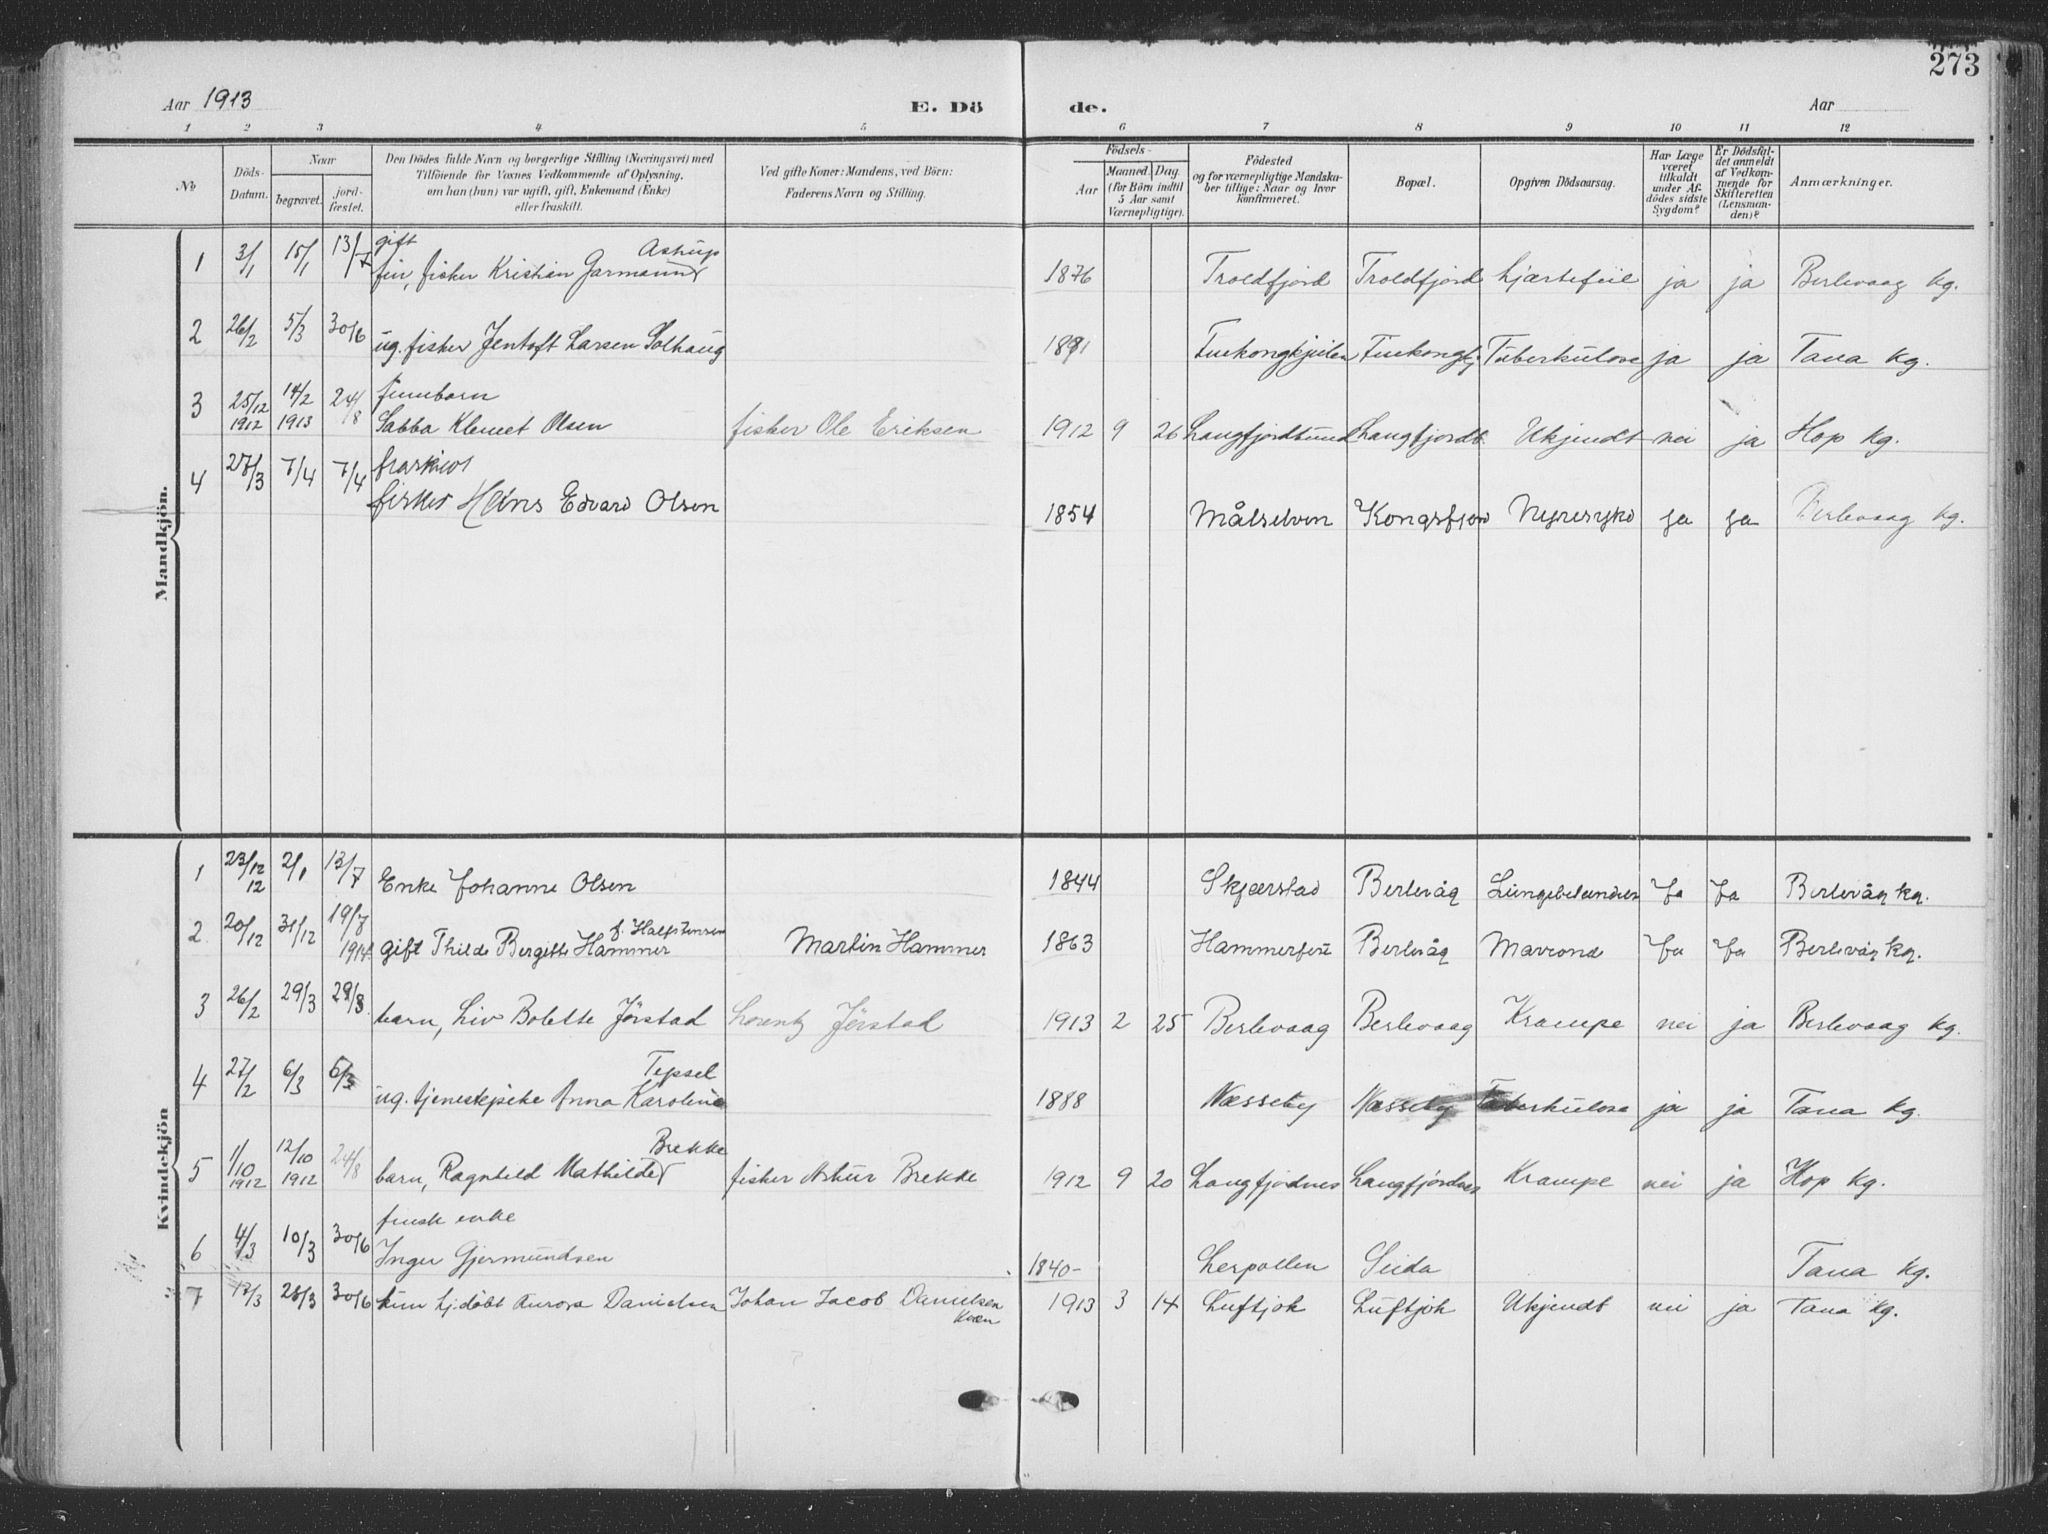 273
Aar 1913
E. Dö
de.
Aar
1 2 3 4 5 6 7 8 9 10 11 12
No
Döds-
Datum.
Naar
begravet.
jord-
fæstet.
Den Dödes fulde Navn og borgerlige Stilling (Næringsvei) med
Tilföiende for Voxnes Vedkommende af Oplysning,
om han (hun) var ugift, gift, Enkemand (Enke)
eller fraskilt.
Ved gifte Koner: Mandens, ved Börn:
Faderens Navn og Stilling.
Födsels-
Aar
Maaned. Dag.
(for Börn indtil
5 Aar samt
Værnepligtige).
Födested
og for værnepligtige Mandska-
ber tillige: Naar og hvor
konfirmeret.
Bopæl.
Opgiven Dödsaarsag.
Har Læge
været
tilkaldt
under Af-
dödes sidste
Sygdom?
Er Dödsfal-
det anmeldt
af Vedkom-
mende for
Skifteretten
(Lensman-
den)?
Anmærkninger.
Mandkjön.
gift Astrup
1 3/1 15/1 13/7 fin, fisker Kristian Garmann 1876 Troldfjord Troldfjord hjærtefeil ja ja Berlevaag kg.
2 26/2 5/3 30/6 ug. fisker Jentoft Larsen Solhaug Tuberkulose ja ja Tana kg.
finnebarn
3 25/12 1912 14/2 1913 24/8 Sabba Klemet Olsen fisker Ole Eriksen 1912 9 26 Langfjordbund Langfjordb. Ukjendt nei ja Hop kg.
fraskilt
4 27/3 7/4 7/4 fisker Hans Edvard Olsen 1854 Målselven Kongsfjord Nyresyke Ja Ja Berlevaag kg.
Kvindekjön
1 23/12 12 2/1 13/7 Enke Johanne Olsen 1844 Skjærstad Berlevåg Lungebetændelse Ja Ja Berlevåg kg.
f. Halfstensen
2 20/12 31/12 19/7 1914 gift Thilde Bergitte Hammer Martin Hammer 1863 Hammerfest Berlevåg Maveonde Ja Ja Berlevåg kg.
3 26/2 29/3 29/8 barn, Liv Bolette Jörstad Lorentz Jörstad 1913 2 25 Berlevaag Berlevaag Krampe nei ja Berlevaag kg.
Tepsel
4 27/2 6/3 6/3 ug. tjenestepike Anna Karoline 1888 Næsseby Næsseby Tuberkulose ja ja Tana kg.
Brekke
5 1/10 1912 12/10 1912 24/8 barn, Ragnhild Mathilde fisker Arthur Brekke 1912 9 20 Langfjordnes Langfjordnes Krampe nei ja Hop kg.
finsk enke
6 4/3 10/3 30/6 Inger Gjermundsen 1840 Leirpollen Seida Tana kg.
7 17/3 28/3 30/6 kun hj.döbt Aurora Danielsen Johan Jacob Danielsen 1913 3 14 Luftjok Luftjok Ukjendt nei ja Tana kg.
kvæn